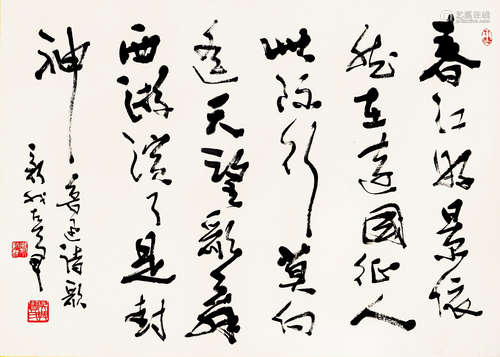 春江好景依
然在遠國征人
此际行莫向
遥天望歌舞
西游演了是封
神
鲁迅詩歌
新我左笔